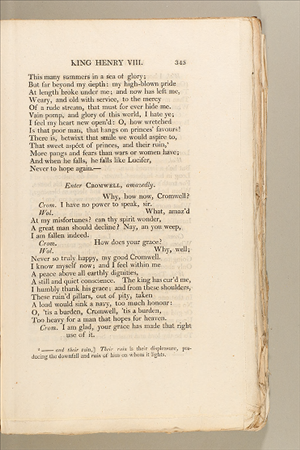 KING HENRY VIII. 343
This many summers in a sea of glory;
But far beyond my depth: my high-blown pride
At length broke under me; and now has left me,
Weary, and old with service, to the mercy
Of a rude stream, that must for ever hide me.
Vain pomp, and glory of this world, I hate ye;
I feel my heart new open'd: O, how wretched
Is that poor man, that hangs on princes' favours!
There is, betwixt that smile we would aspire to,
That sweet aspéct of princes, and their ruin,*
More pangs and fears than wars or women have;
And when he falls, he falls like Lucifer,
Never to hope again.—
Enter CROMWELL, amazedly.
Why, how now, Cromwell?
Crom. I have no power to speak, sir.
Wol. What, amaz'd
At my misfortunes? can thy spirit wonder,
A great man should decline? Nay, an you weep,
I am fallen indeed.
Crom. How does your grace?
Wol. Why, well;
Never so truly happy, my good Cromwell.
I know myself now; and I feel within me
A peace above all earthly dignities,
A still and quiet conscience. The king has cur'd me,
I humbly thank his grace; and from these shoulders,
These ruin'd pillars, out of pity, taken
A load would sink a navy, too much honour:
O, 'tis a burden, Cromwell, 'tis a burden,
Too heavy for a man that hopes for heaven.
Crom. I am glad, your grace has made that right
use of it.
* —— and their ruin,] Their ruin is their displeasure, pro-
ducing the downfall and ruin of him on whom it lights.